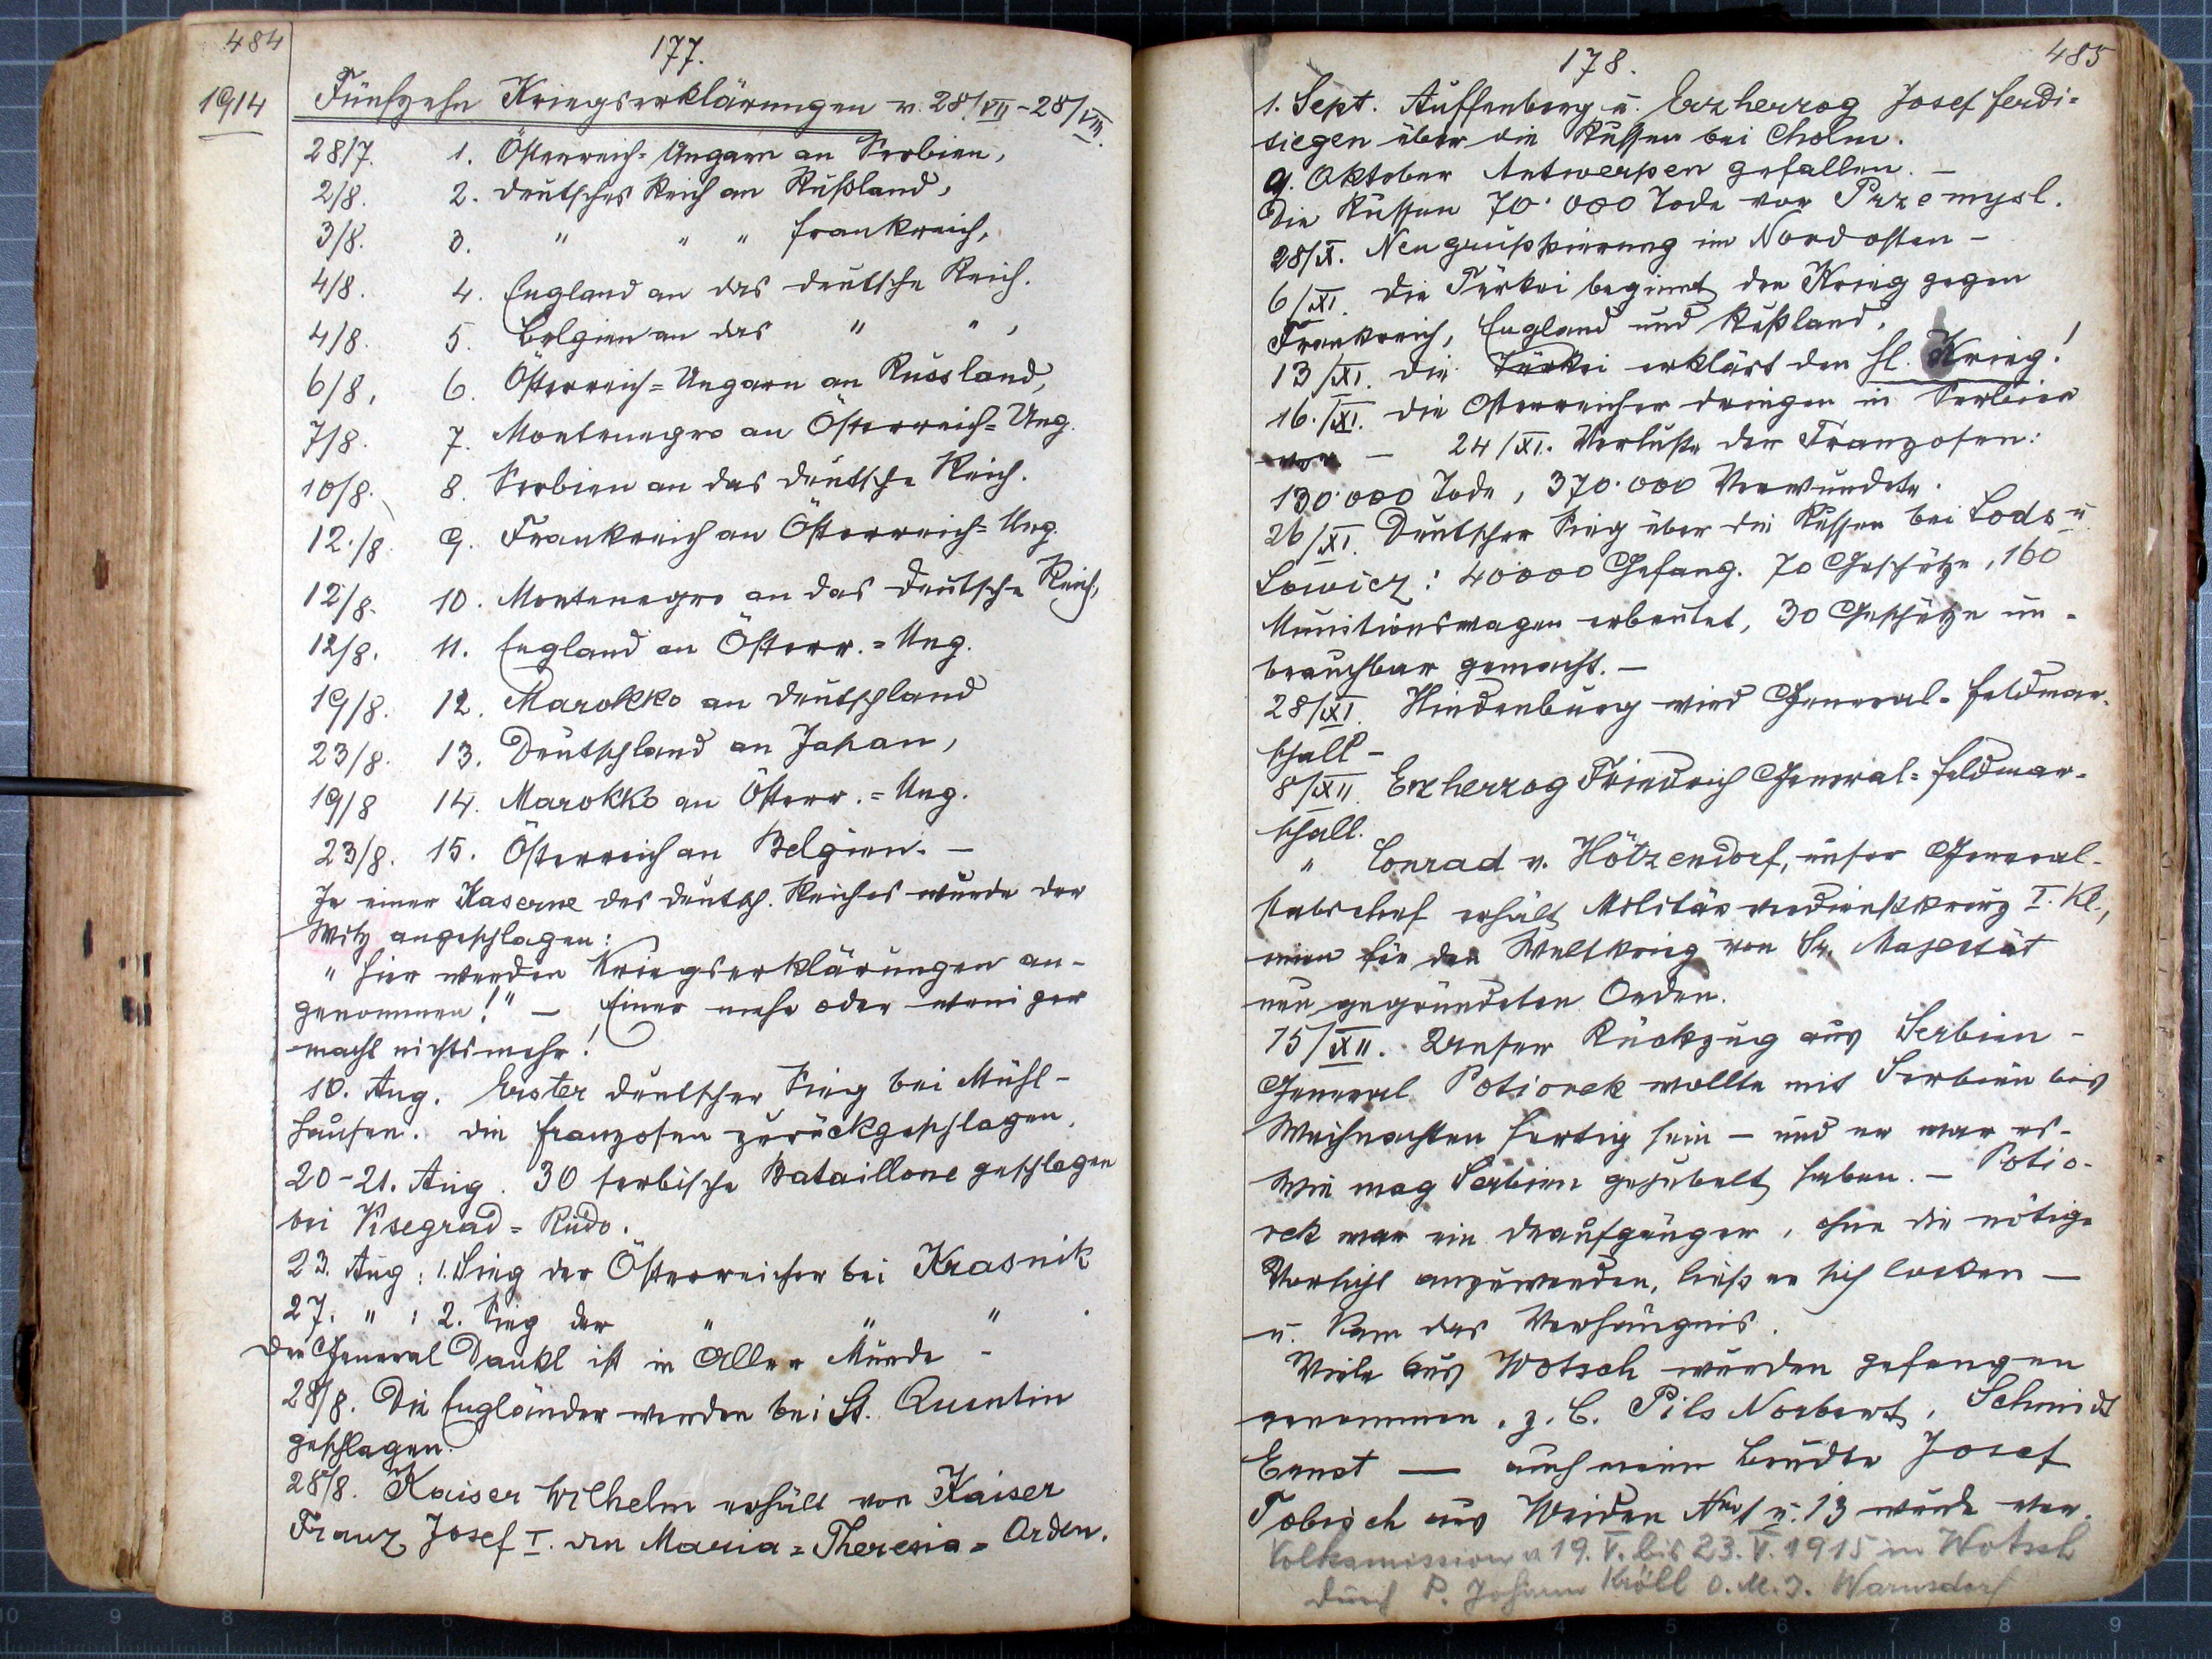 484
177.
1914
Fünfzehn Kriegserklärungen v. 28/VII - 28/VIII.
28/7. 1. Österreich-Ungarn an Serbien,
2/8. 2. Deutsches Reich an Rußland,
3/8. 3. " " " Frankreich,
4/8. 4. England an das deutsche Reich.
4/8. 5. Belgien an das " ",
6/8. 6. Österreich=Ungarn an Russland,
7/8. 7. Montenegro an Österreich=Ung.
10/8. 8. Serbien an das deutsche Reich.
12./8. 9. Frankreich an Österreich=Ung.
12/8. 10. Montenegro an das deutsche Reich,
12/8. 11. England an Österr.=Ung.
19/8. 12. Marokko an Deutschland
23/8. 13. Deutschland an Japan,
19/8 14. Marokko an Österr.=Ung.
23/8. 15. Österreich an Belgien. —
In einer Kaserne des deutsch. Reiches wurde der
Witz angeschlagen:
"Hier werden Kriegserklärungen an-
genommen!" — Einer mehr oder weniger
macht nichts mehr!
10. Aug. Erster deutscher Sieg bei Mühl-
hausen. Die Franzosen zurückgeschlagen.
20-21. Aug. 30 serbische Bataillone geschlagen
bei Visegrad=Rudo.
23. Aug: 1. Sieg der Österreicher bei Krasnik
27. " : 2. Sieg der " " " .
Der General Dankl ist in Aller Munde -
28/8. Die Engländer werden bei St. Quentin
geschlagen.
28/8. Kaiser Wilhelm erhält von Kaiser
Franz Josef I. den Maria=Theresia=Orden.
485
178.
1. Sept. Auffenberg u. Erzherzog Josef Ferdi-
siegen über die Russen bei Cholm.
9. Oktober Antwerpen gefallen. —
Die Russen 70.000 Tode vor Przemysl.
28/X. Neugruppierung im Nordosten -
6/XI. Die Türkei beginnt den Krieg gegen
Frankreich, England und Rußland.
13/XI. Die Türkei erklärt den hl. Krieg!
16./XI. Die Österreicher dringen in Serbien
vor — 24/XI. Verluste der Franzosen:
130.000 Tode, 370.000 Verwundete.
26/XI. Deutscher Sieg über die Russen bei Lods u
Lowicz: 40000 Gefang. 70 Geschütze, 160
Munitionswagen erbeutet, 30 Geschütze un-
brauchbar gemacht. —
28/XI. Hindenburg wird General-Feldmar-
schall -
8/XII. Erzherzog Friedrich General=Feldmar-
schall.
" Conrad v. Hötzendorf, unser General-
stabschef erhält Militärverdienstkreuz I. Kl.,
einen für den Weltkrieg von Sr. Majestät
neu gegründeten Orden.
15/XII. Unser Rückzug aus Serbien -
General Potiorek wollte mit Serbien bis
Weihnachten fertig sein — und er war es -
Wie mag Serbien gejubelt haben. — Potio-
rek war ein Draufgänger, ohne die nötige
Vorsicht anzuwenden, ließ er sich locken —
u. kam das Verhängnis.
Viele aus Wotsch wurden gefangen
genommen, z. B. Pils Norbert, Schmidt
Ernst — auch mein Bruder Josef
Tobisch aus Weiden Nro 1 u. 13 wurde ver-
Volksmission v 19. V. bis 23. V. 1915 in Wotsch
durch P. Johann Kröll O.M.I. Warnsdorf